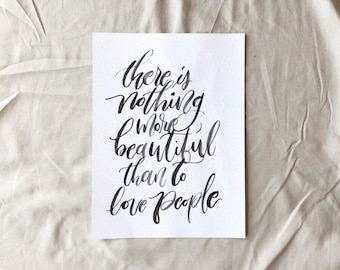 there is
nothing
more
beautiful
than to
love people